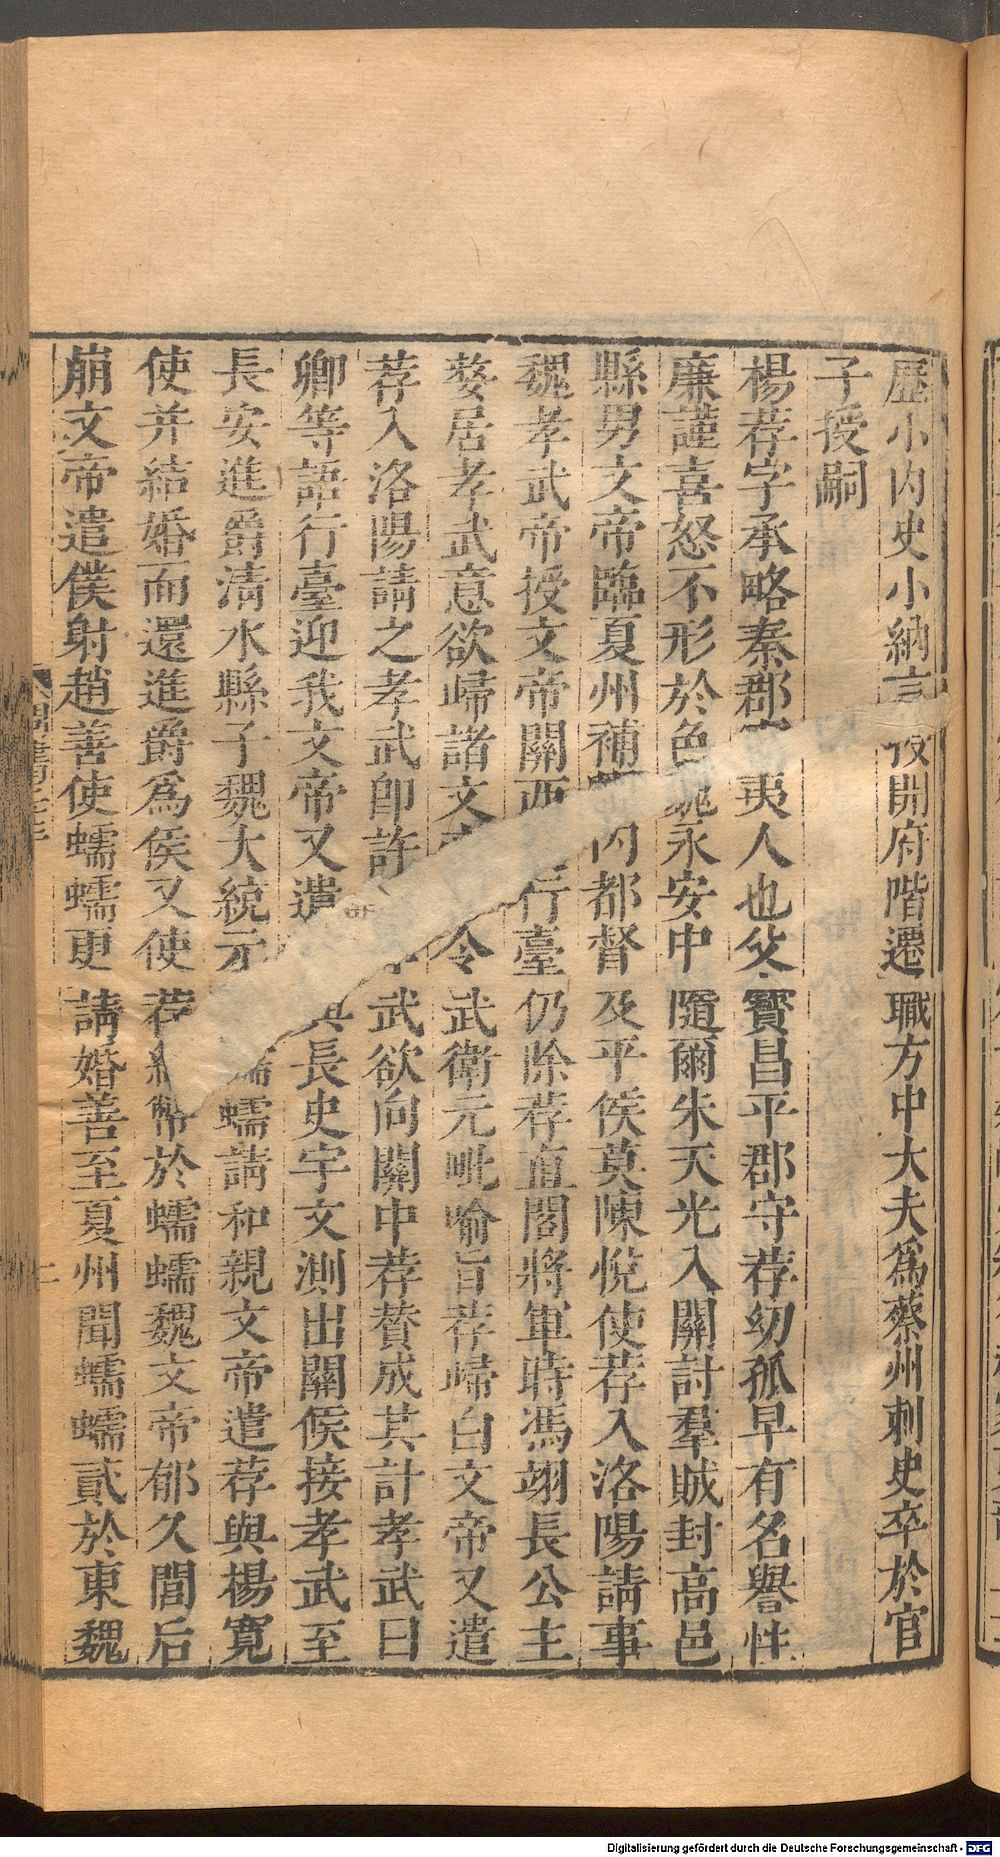 歷小內史小納言授開府階遷職方中大夫爲蔡州刺史卒於官
子授嗣
楊荐字承略秦郡夷人也父寳昌平郡守荐幼孤早有名譽性
廉謹喜怒不形於色魏永安中隨爾朱天光入關討羣賊封高邑
縣男文帝臨夏州補內都督及平侯莫陳悅使荐入洛陽請事
魏孝武帝授文帝關西行臺仍除荐直閤將軍時馮翊長公主
嫠居孝武意欲歸諸文令武衛元毗喻旨荐歸白文帝又遣
荐入洛陽請之孝武卽許武欲向關中荐贊成其計孝武曰
卿等語行臺迎我文帝又遣長史宇文測出關候接孝武至
長安進爵清水縣子魏大統元蠕請和親文帝遣荐與楊寬
使并結婚而還進爵爲侯又使荐幣於蠕蠕魏文帝郁久閭后
崩文帝遣僕射趙善使蠕蠕更請婚善至夏州聞蠕蠕貳於東魏
二
Digitalisierung gefördert durch die Deutsche Forschungsgemeinschaft - DFG